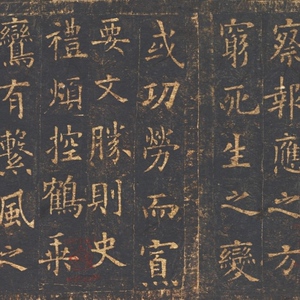 察報應之方
窮死生之變
或功勞而寡
要文勝則史
禮煩控鶴乘
鸞有繫風之